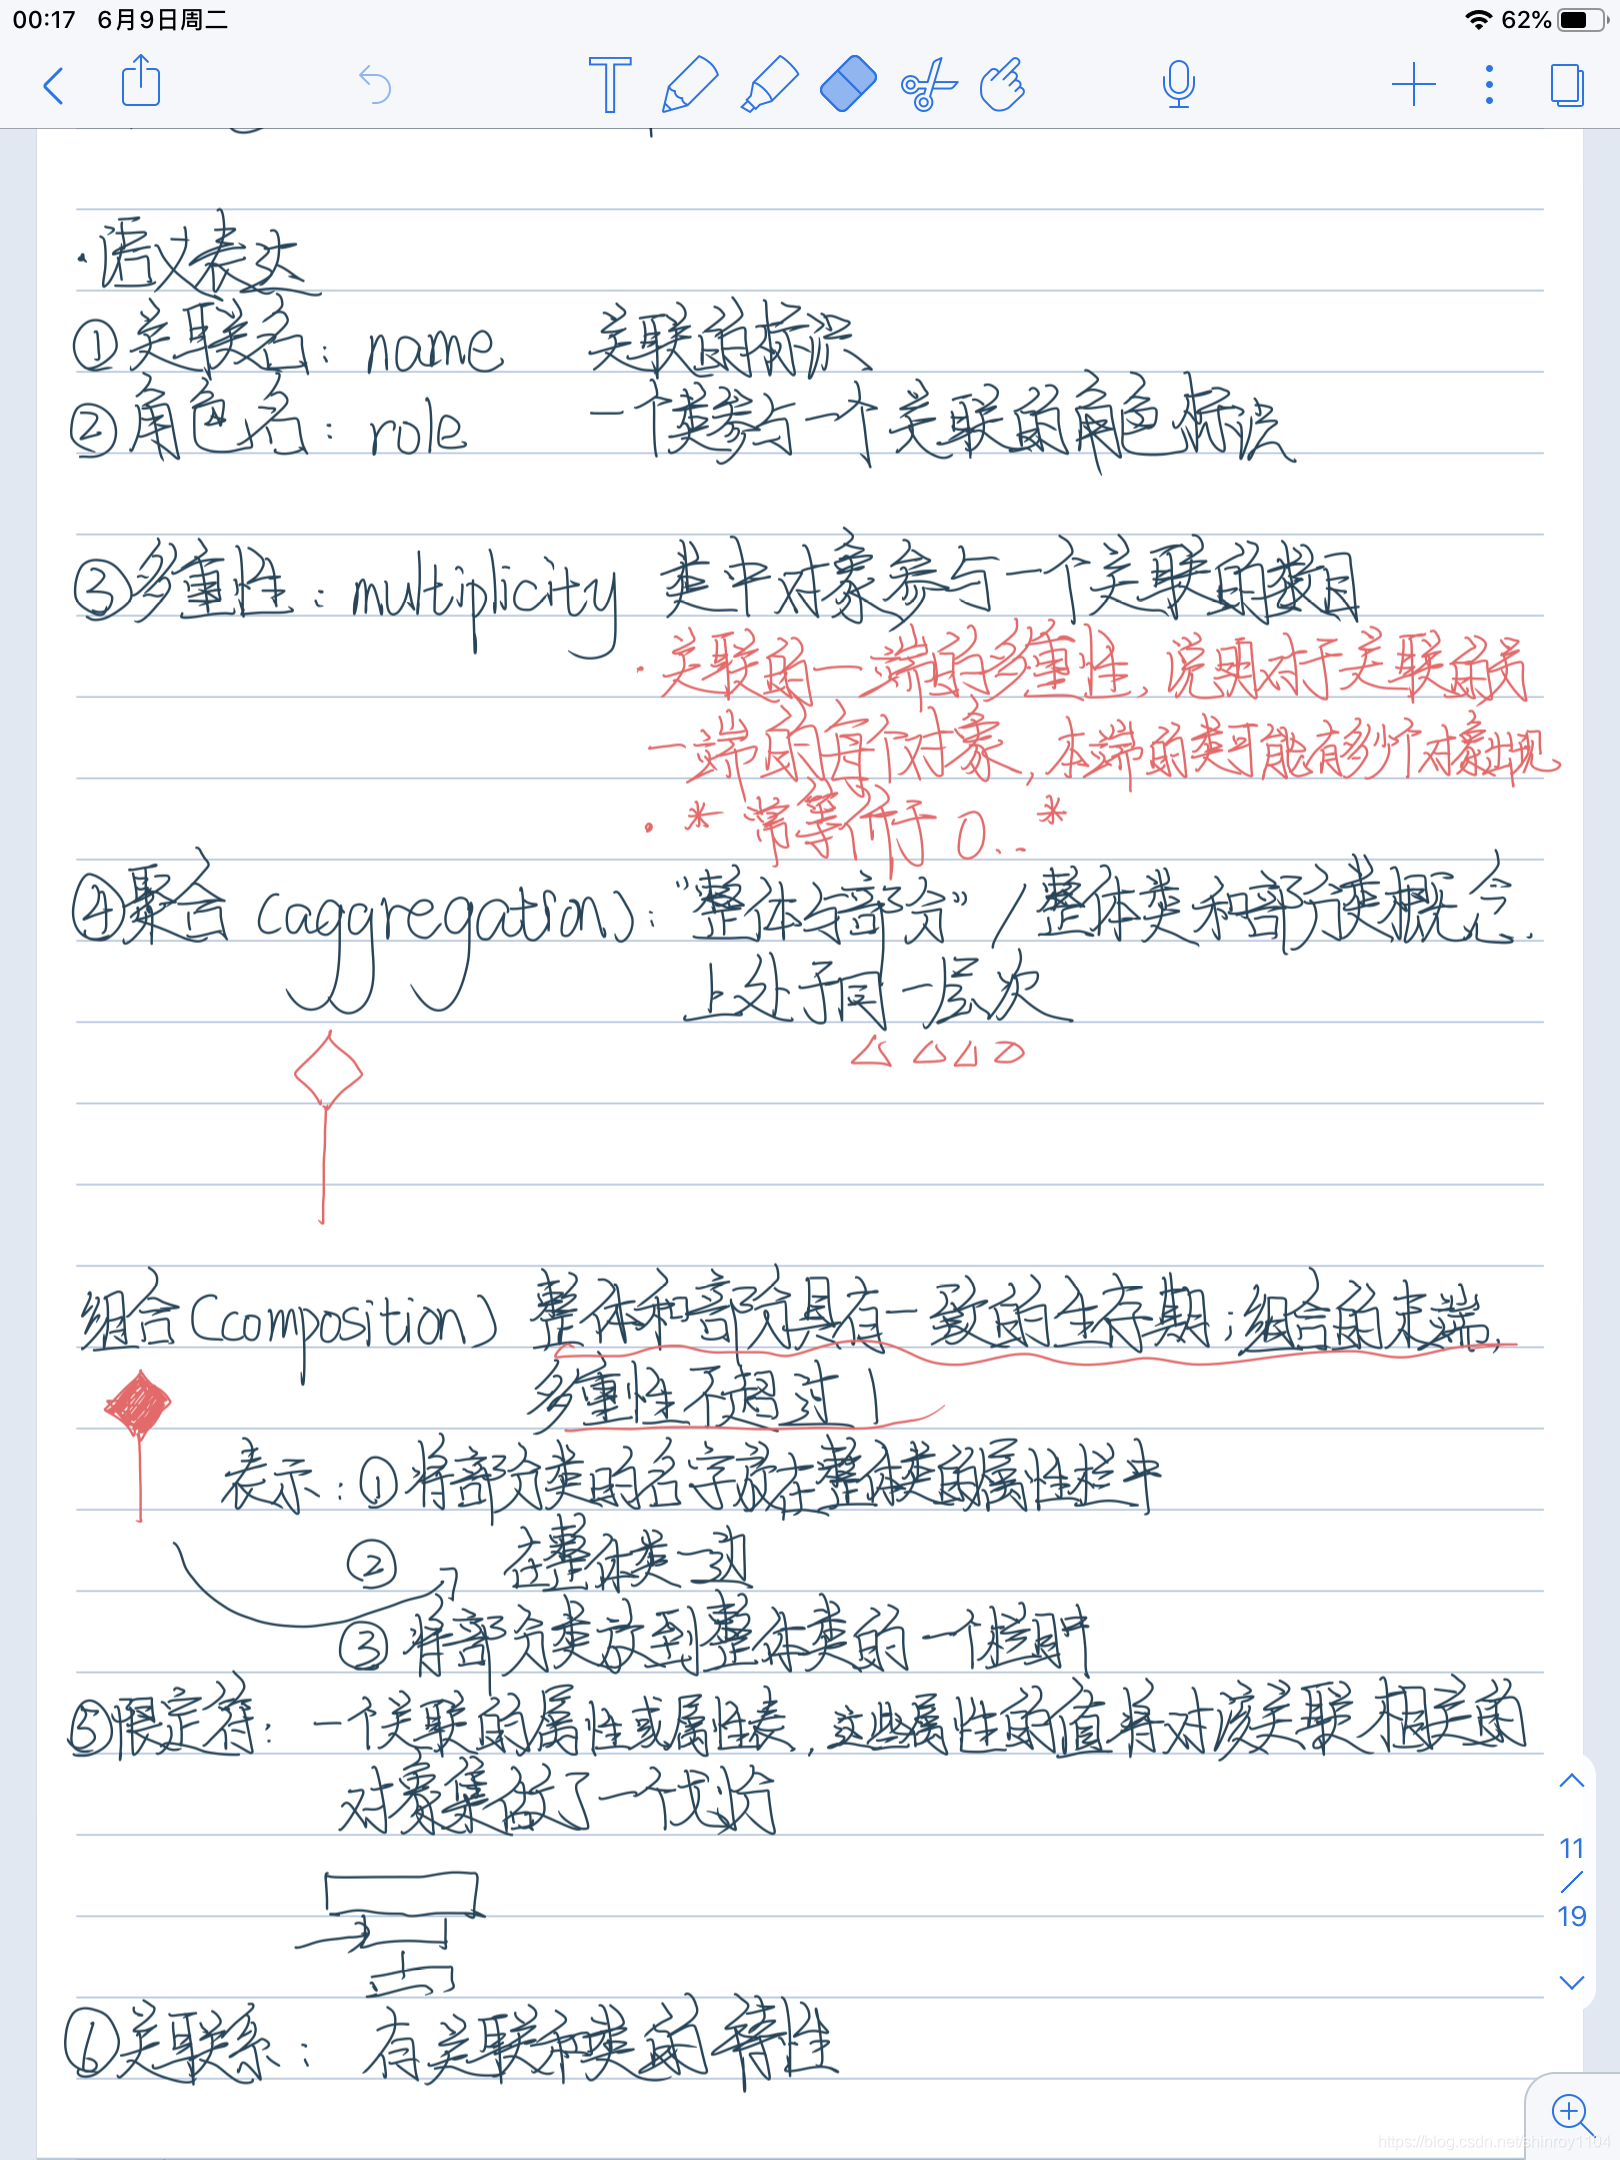 00:17 6月9日周二
62%
·语义表达
①关联名：name 关联的标识
②角色名：role 一个类参与一个关联的角色标识
③多重性：multiplicity 类中对象参与一个关联的数目
·关联的一端的多重性，说明对于关联的另
一端的每个对象，本端的类可能有多少个对象出现
·* 常等价于 0..*
④聚合(aggregation)："整体与部分"/整体类和部分类概念
上处于同一层次
组合(composition) 整体和部分具有一致的生存期；组合的末端，
多重性不超过1
表示：①将部分类的名字放在整体类的属性栏中
② 在整体类一边
③将部分类放到整体类的一个栏目中
⑤限定符：一个关联的属性或属性表，这些属性的值将对该关联相关的
对象集做了一个划分
11
/
19
⑥关联系：有关联和类的特性
https://blog.csdn.net/shinroy1104